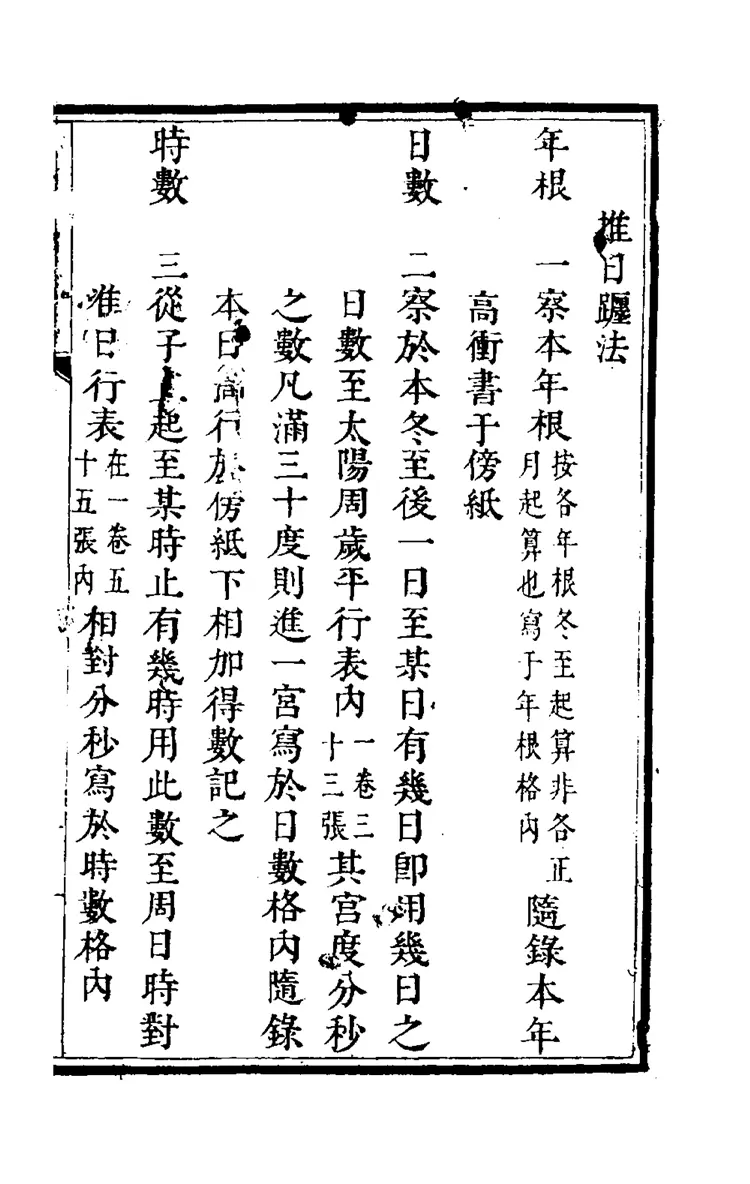 推日躔法
年根　一察本年根按各年根冬至起算非各正月起算也寫于年根格內隨錄本年
高衝書于傍紙
日數　二察於本冬至後一日至某日有幾日卽用幾日之
日數至太陽周歲平行表內一卷三十三張其宮度分秒
之數凡滿三十度則進一宮寫於日數格內隨錄
本日高行於傍紙下相加得數記之
時數　三從子正起至某時止有幾時用此數至周日時對
準日行表在一卷五十五張內相對分秒寫於時數格內